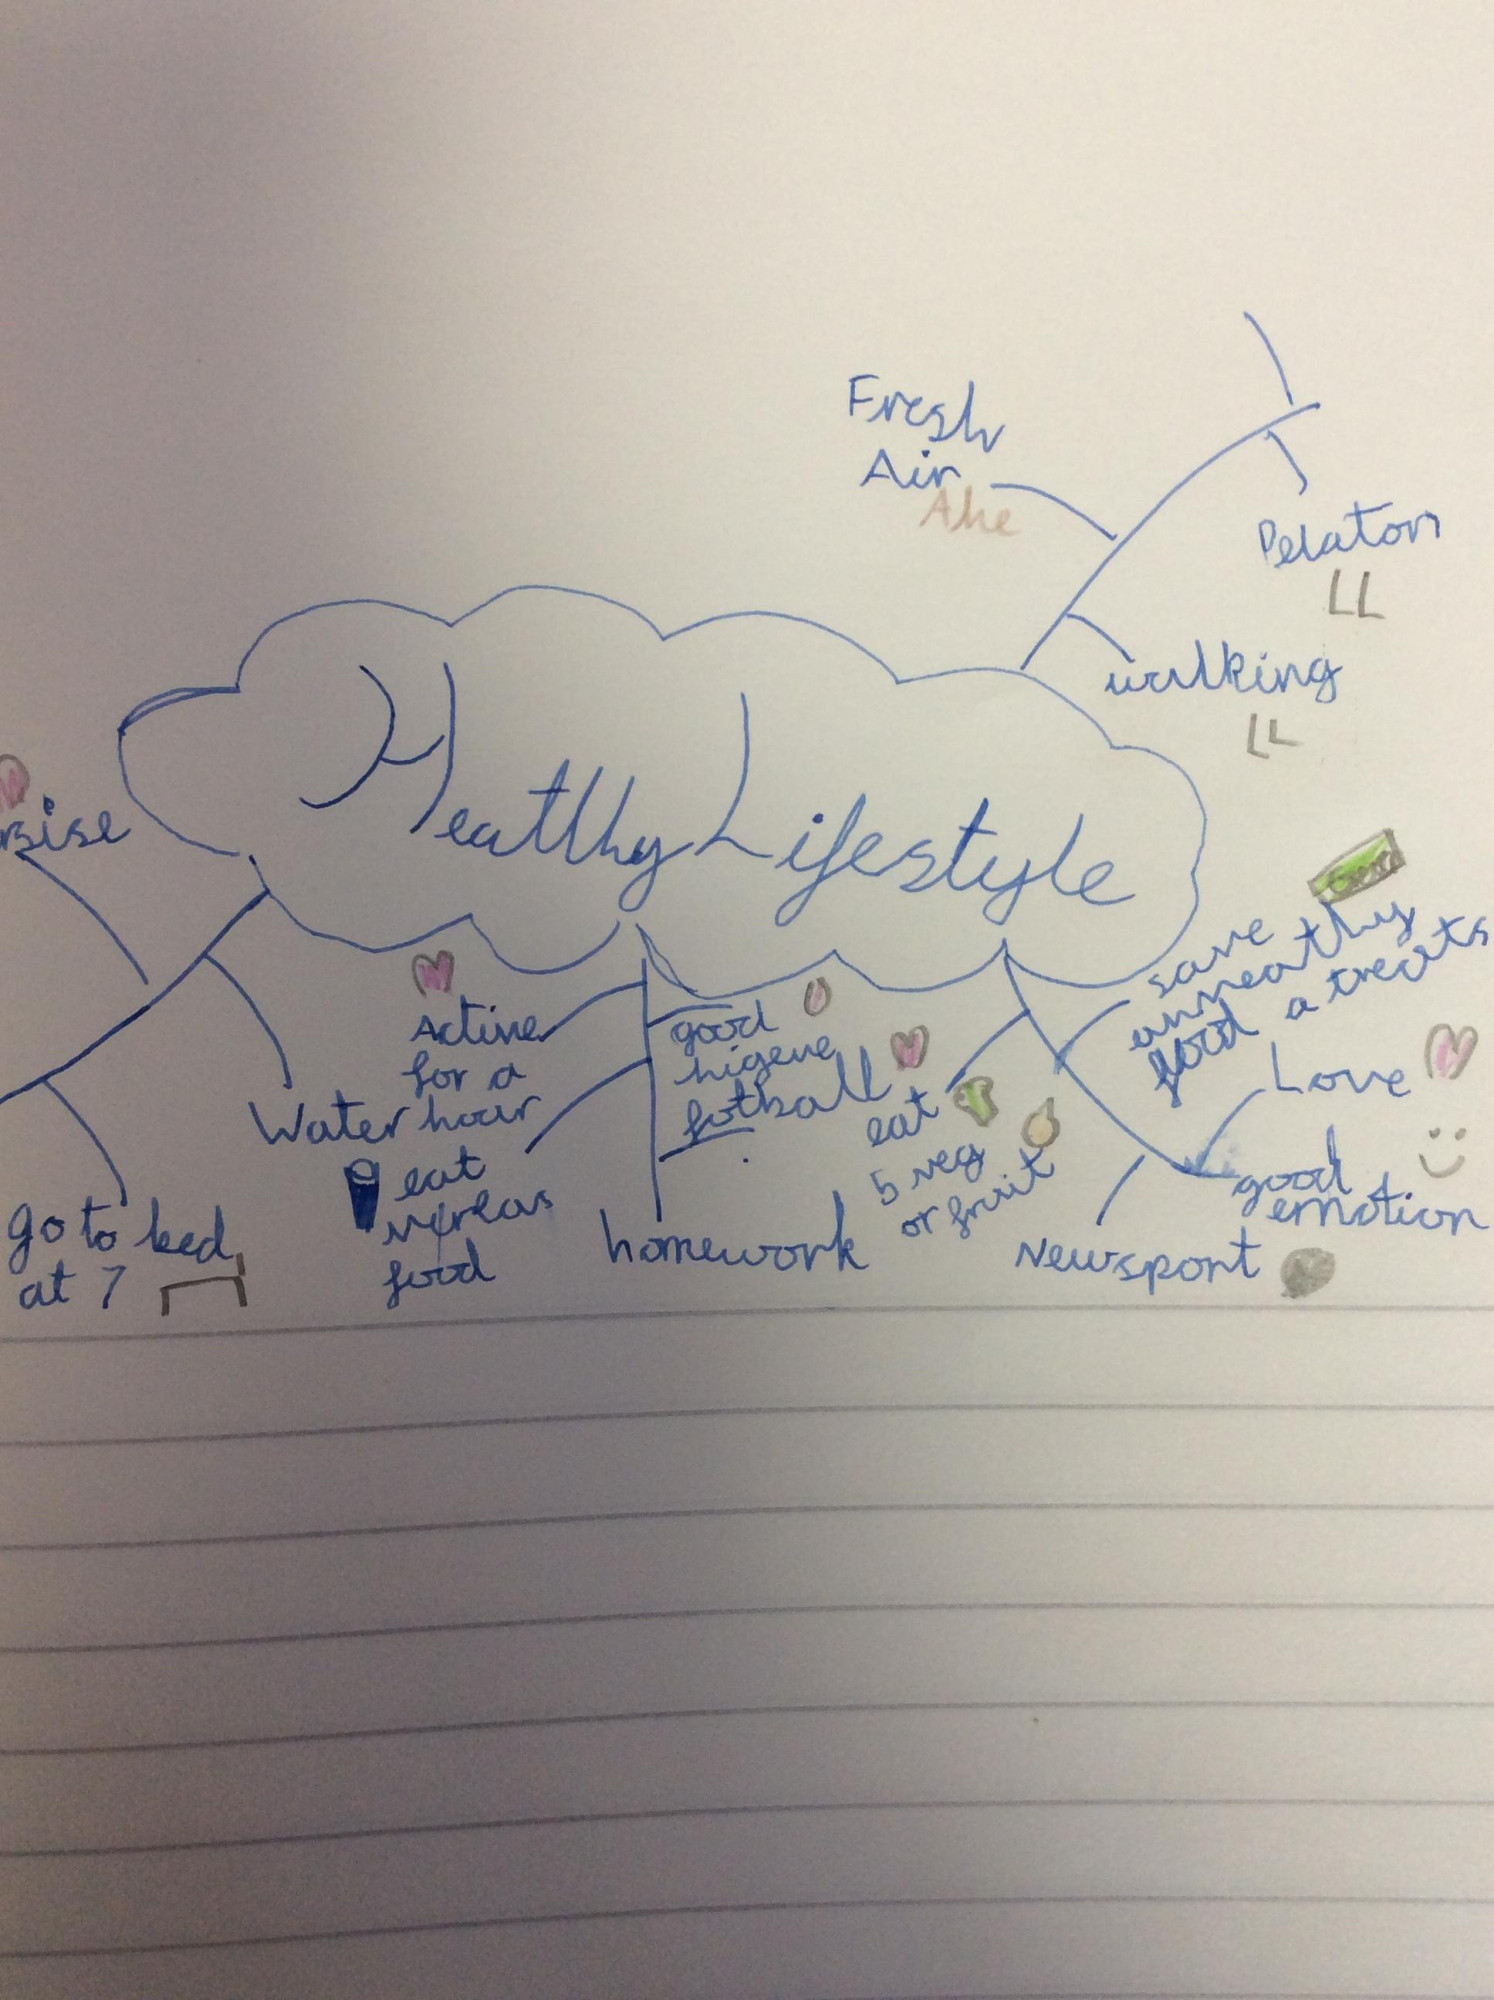 Fresh
Air
Pelaton
walking
Heatlhy Lifestyle
save
unheathy
food a treats
Love
good
emotion
Newsport
eat
5 veg
or fruit
good
higene
fotball
homework
Active
for a
hour
eat
food
Water
go to bed
at 7